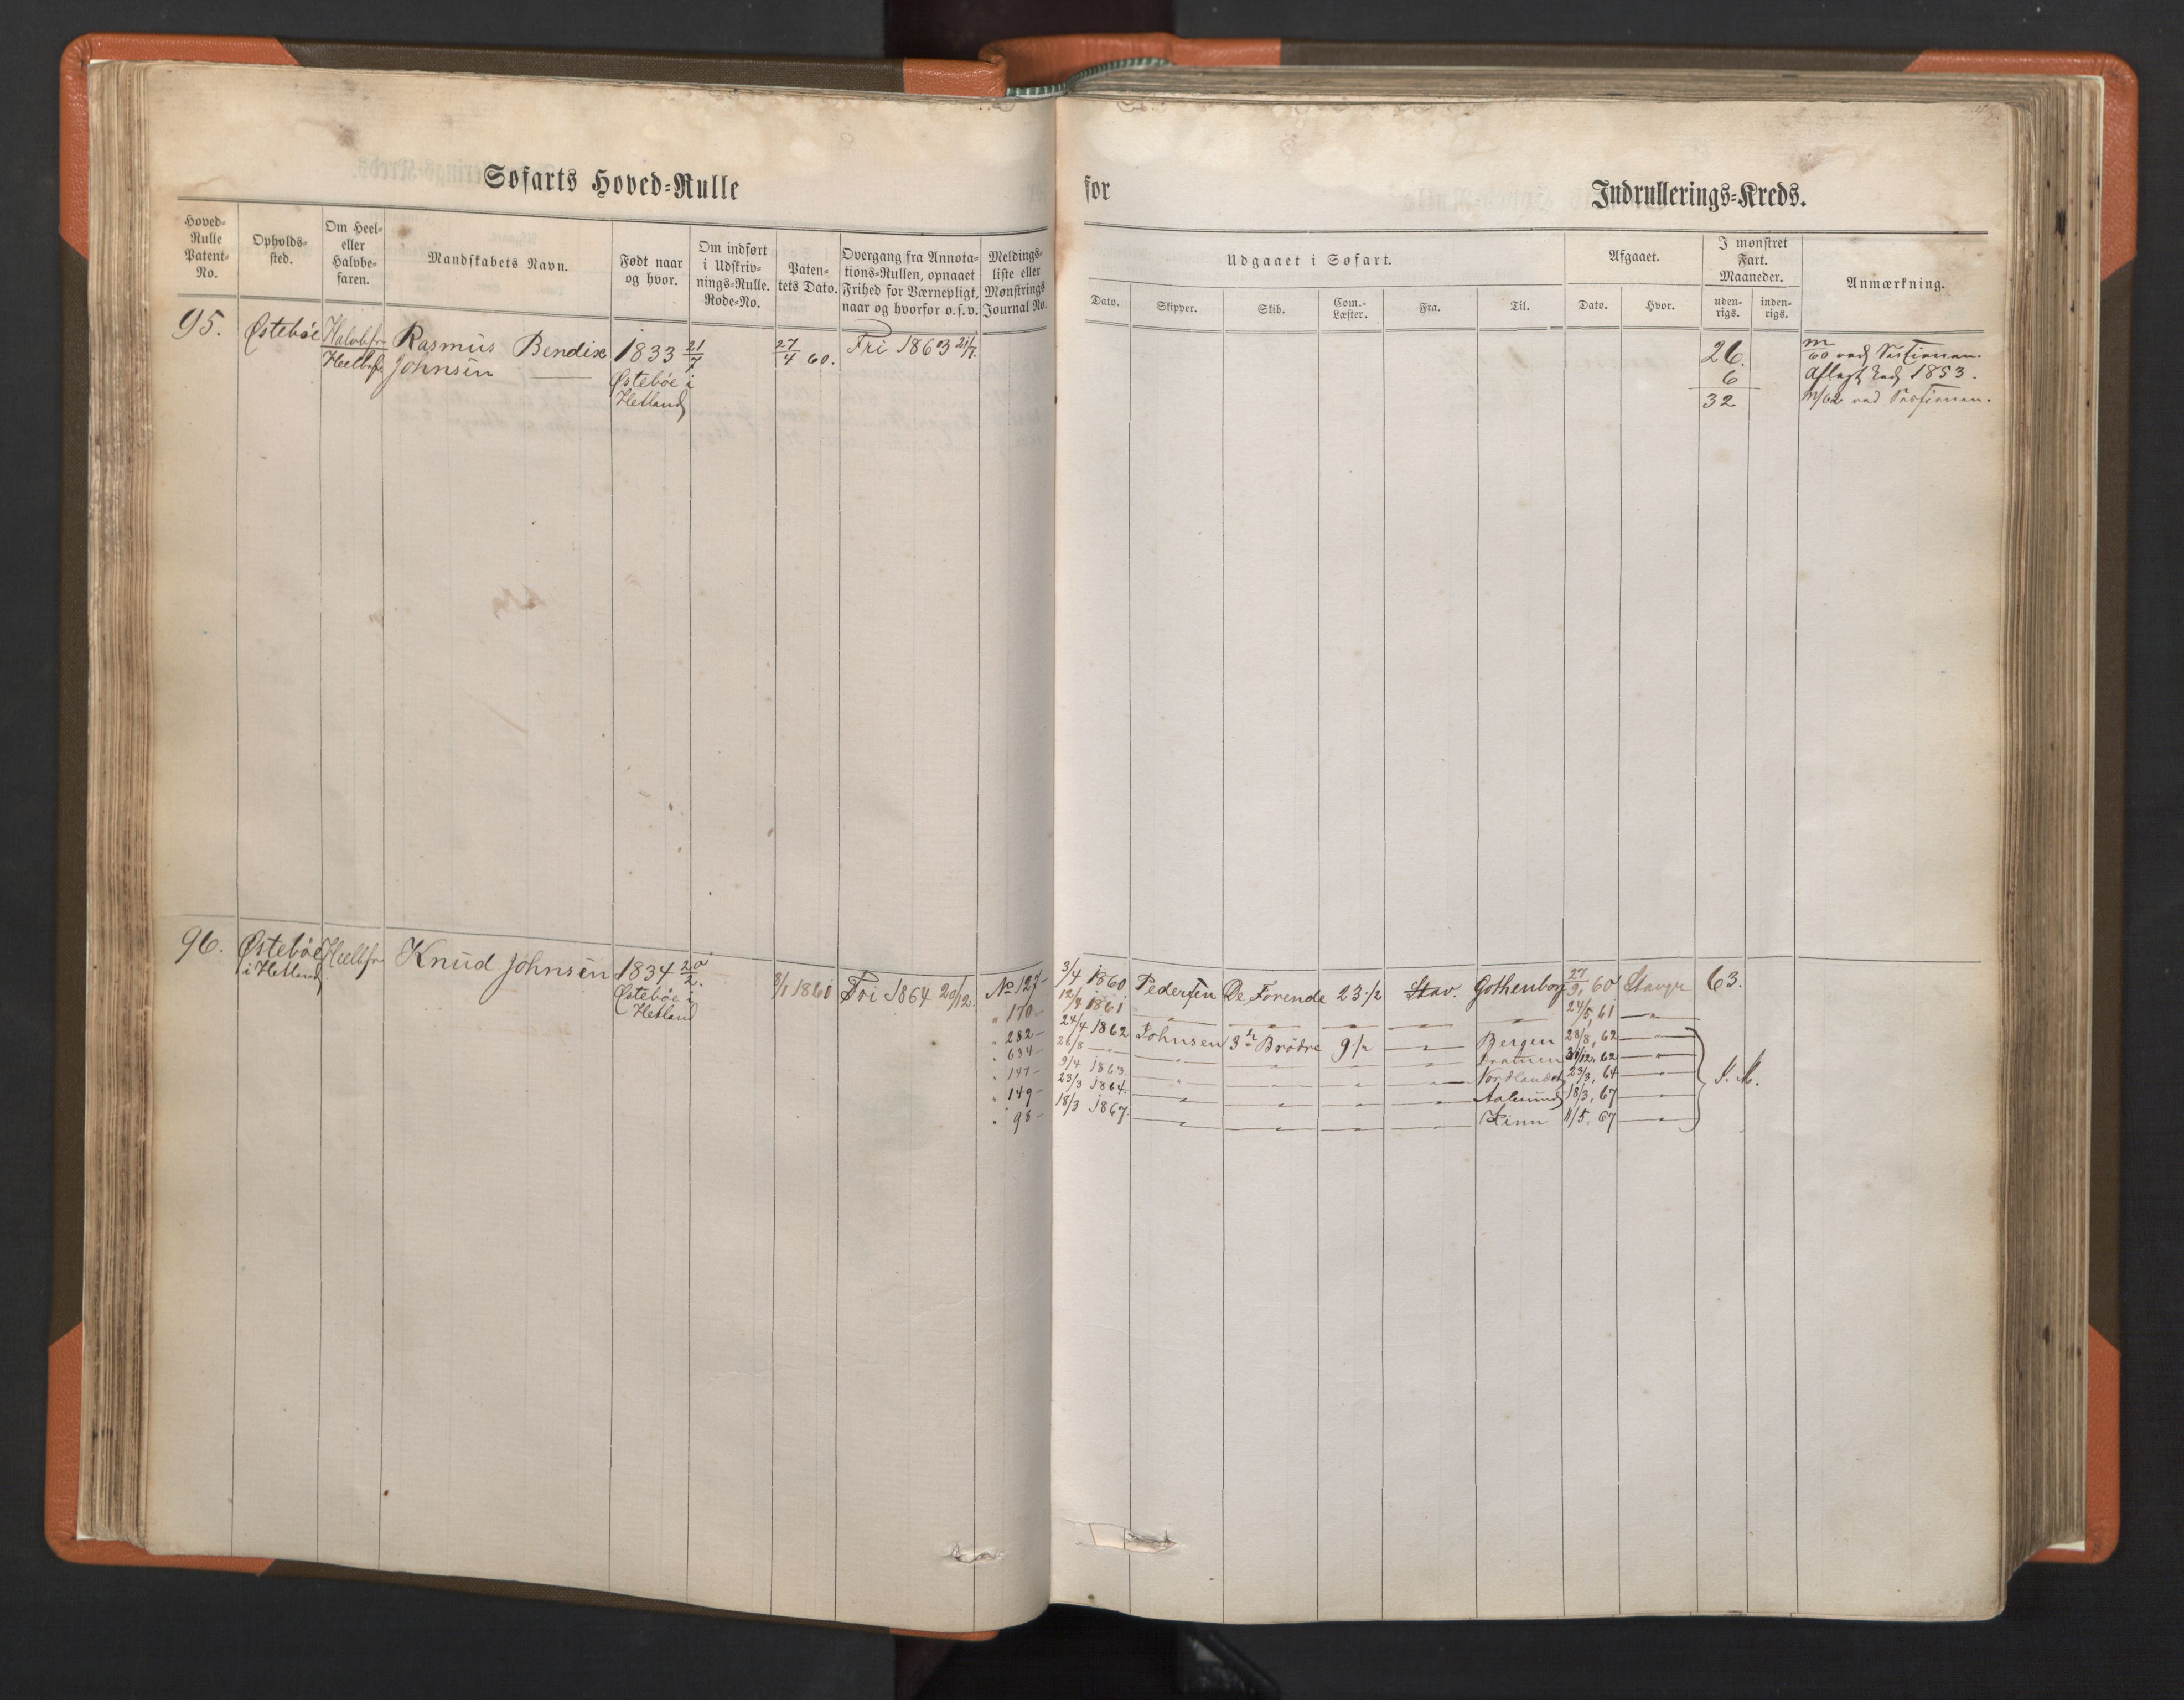 Søfarts Hoved=Rulle
for
Indrullerings=Kreds.
Hoved=
Rulle
Patent=
No.
Opholds=
sted.
Om Heel=
eller
Halvbe=
faren.
Mandskabets Navn.
Født naar
og hvor.
Om indført
i Udskriv=
nings=Rulle.
Rode=No.
Paten=
tets Dato.
Overgang fra Annota=
tions=Rullen, opnaaet
Frihed for Værnepligt,
naar og hvorfor o.s.v.
Meldings=
liste eller
Mønstrings
Journal No.
Udgaaet i Søfart.
Dato.
Skipper.
Skib.
Com.=
Læster.
Fra.
Til.
Afgaaet.
Dato.
Hvor.
I mønstret
Fart.
Maaneder.
uden=
rigs.
inden=
rigs.
Anmærkning.
95. Østebøe Halvbfr Rasmus Bendix 1833 21/7 27/4 60. Fri 1863 21/7.
Heelbf. Johnsen
Østebøe i
Hetland
26.
6
32
m/60 ved
Aflagt Eed 1853.
m/62 ved
96. Østebøe Heelbfr Knud Johnsen 1834 20/2. 3/1 1861 Fri 1864 20/12.
i Hetland
Østebøe i
Hetland
No 127- 3/4 1860 Pedersen De Forende 23 1/2 Stav. Gothenborg 27/9, 60 Stavgr 63.
" 170- 12/4 1861 — " — — " — — " — — " — — " — 24/5, 61 — " —
" 282- 24/4 1862 Johnsen 3de Brødre 9 1/2 — " — Bergen 28/8, 62 — " —
" 634- 26/8 — " — — " — — " — — " — — " — 31/12, 62 — " —
" 147- 9/4 1863. — " — — " — — " — — " — Nordlandet 23/3, 64 — " — I. M.
" 149- 23/3 1864. — " — — " — — " — — " — Aalesund 18/3, 67 — " —
" 98- 18/3 1867. — " — — " — — " — — " — Kinn 11/5. 67 — " —